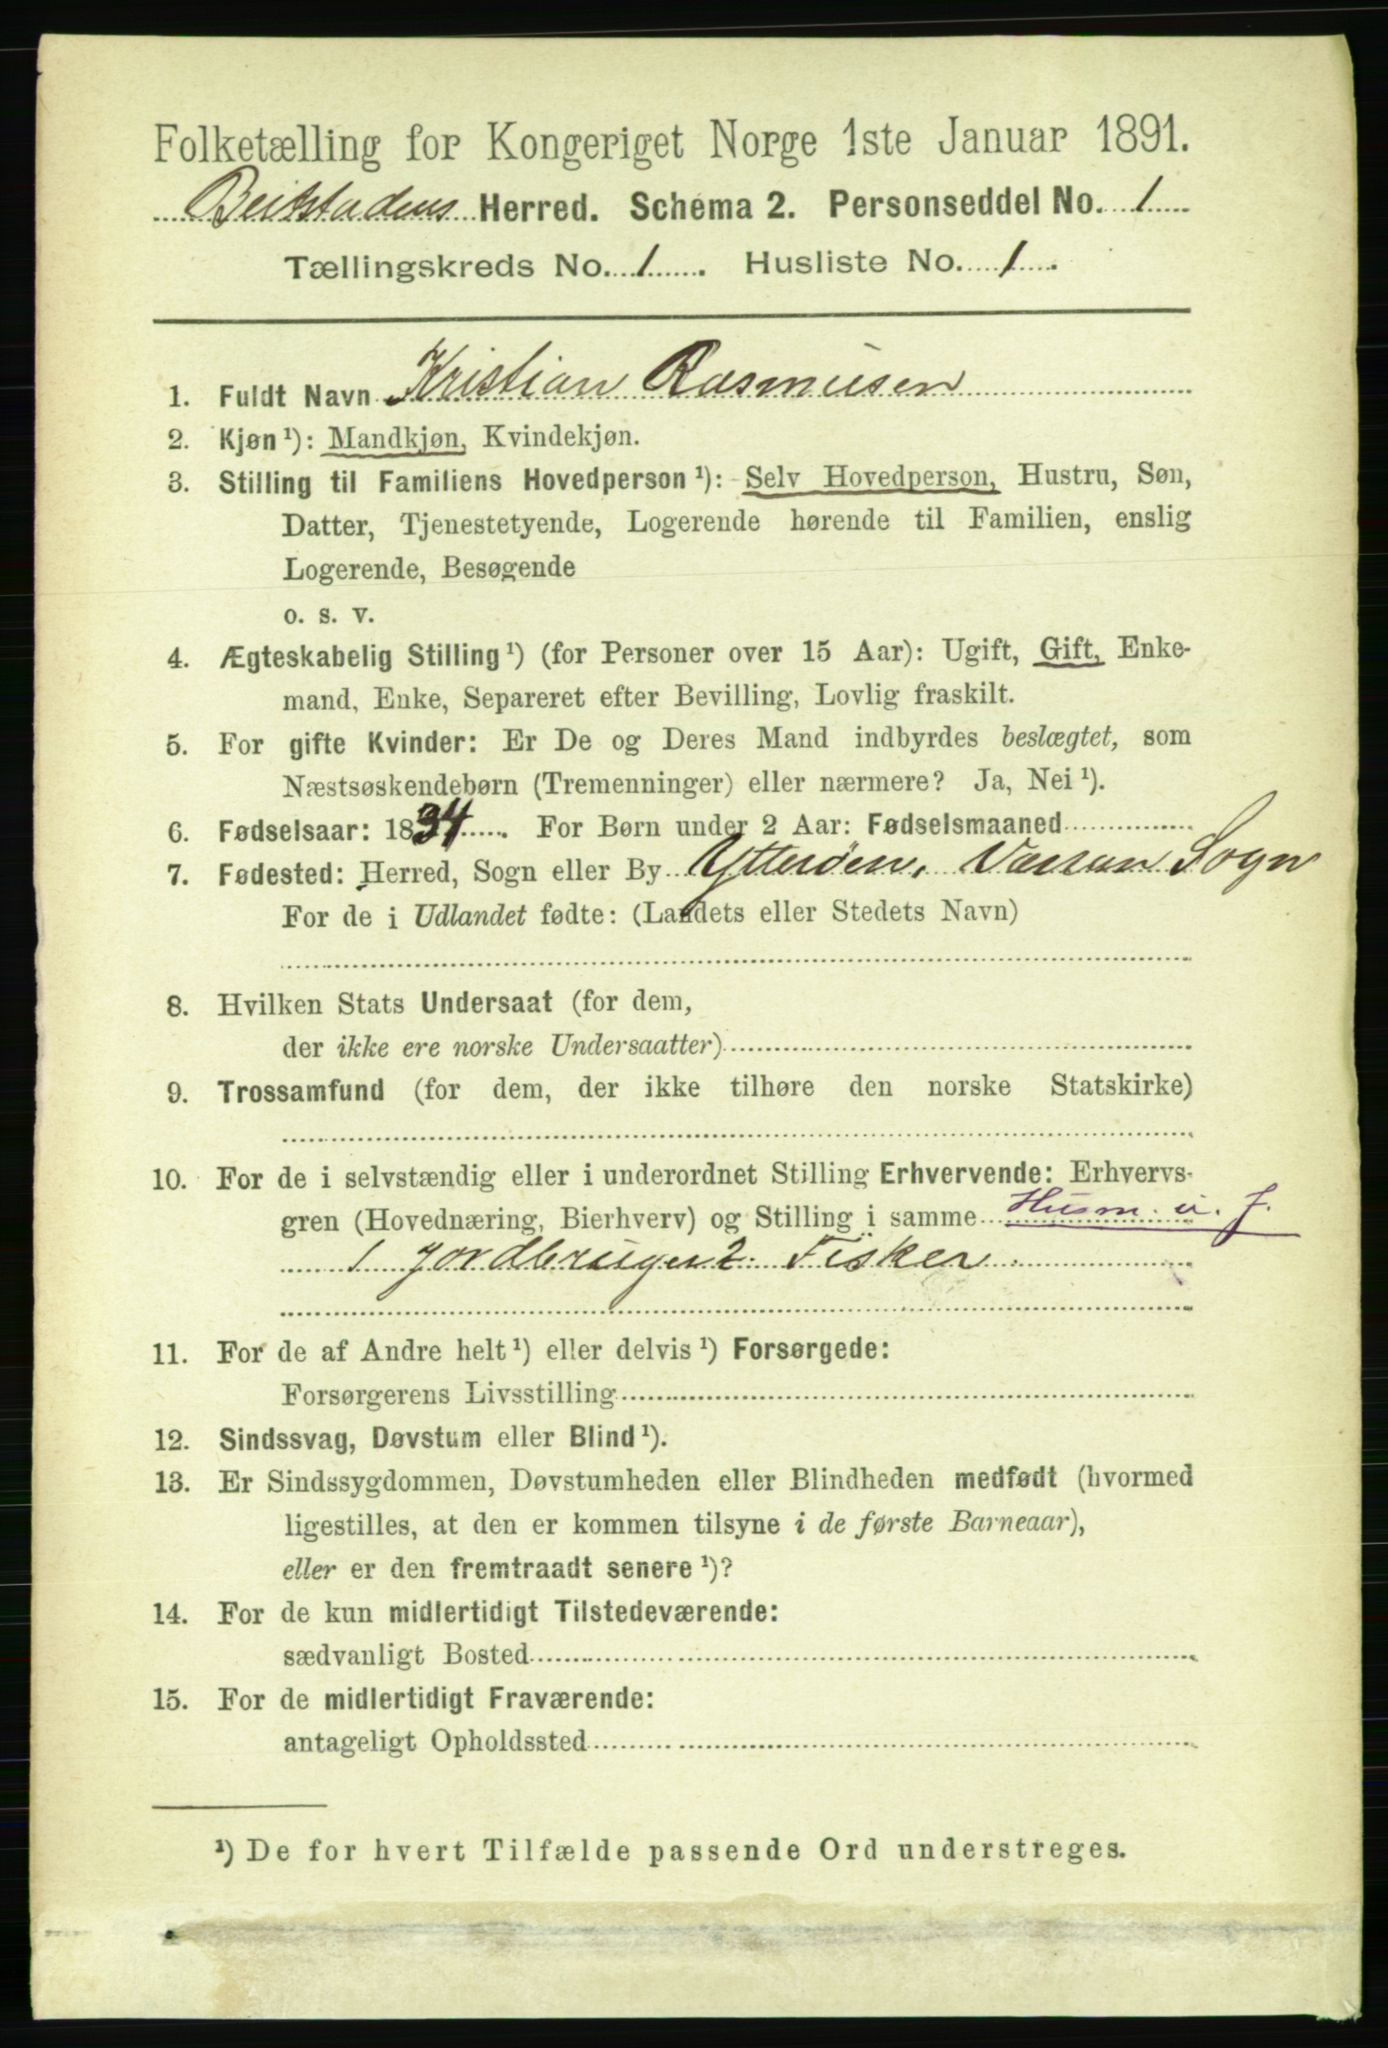 Folketælling for Kongeriget Norge 1ste Januar 1891.
Beitstadens Herred. Schema 2. Personseddel No. 1
Tællingskreds No. 1. Husliste No. 1.
1. Fuldt Navn Kristian Rasmusen
2. Kjøn ¹): Mandkjøn, Kvindekjøn.
3. Stilling til Familiens Hovedperson ¹): Selv Hovedperson, Hustru, Søn,
Datter, Tjenestetyende, Logerende hørende til Familien, enslig
Logerende, Besøgende
o. s. v.
4. Ægteskabelig Stilling ¹) (for Personer over 15 Aar): Ugift, Gift, Enke-
mand, Enke, Separeret efter Bevilling, Lovlig fraskilt.
5. For gifte Kvinder: Er De og Deres Mand indbyrdes beslægtet, som
Næstsøskendebørn (Tremenninger) eller nærmere? Ja, Nei ¹).
6. Fødselsaar: 1834. For Børn under 2 Aar: Fødselsmaaned
7. Fødested: Herred, Sogn eller By Ytterøen, Værran Sogn
For de i Udlandet fødte: (Landets eller Stedets Navn)
8. Hvilken Stats Undersaat (for dem,
der ikke ere norske Undersaatter)
9. Trossamfund (for dem, der ikke tilhøre den norske Statskirke)
10. For de i selvstændig eller i underordnet Stilling Erhvervende: Erhvervs-
gren (Hovednæring, Bierhverv) og Stilling i samme Husm. u. J.
1 Jordbruger 2. Fisker.
11. For de af Andre helt ¹) eller delvis ¹) Forsørgede:
Forsørgerens Livsstilling
12. Sindssvag, Døvstum eller Blind ¹).
13. Er Sindssygdommen, Døvstumheden eller Blindheden medfødt (hvormed
ligestilles, at den er kommen tilsyne i de første Barneaar),
eller er den fremtraadt senere ¹)?
14. For de kun midlertidigt Tilstedeværende:
sædvanligt Bosted
15. For de midlertidigt Fraværende:
antageligt Opholdssted
¹) De for hvert Tilfælde passende Ord understreges.